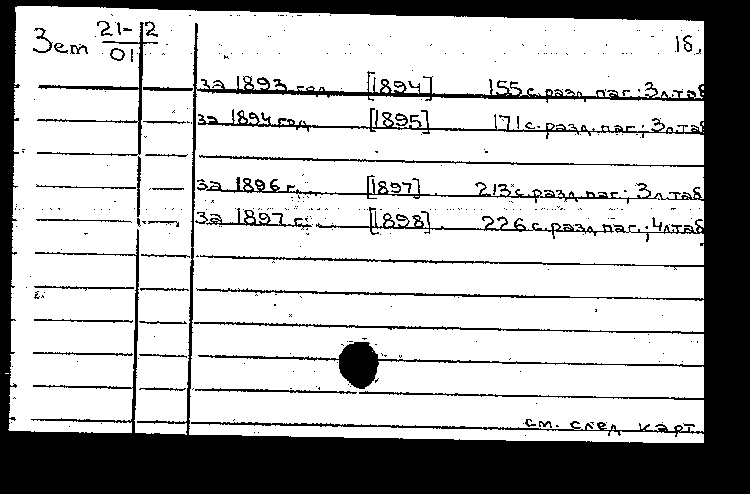 Зет 21-2 18.
01
за 1893 год [1894] 155 с. разд. паг.; 3 л. таб
за 1894 год [1895] 171 с. разд. паг.; 3 л. таб
за 1896 г. [1897]. 213 с. разд. паг.; 3 л. таб
за 1897 г. [1898]. 226 с. разд. паг.; 4 л. таб
см. след карт.